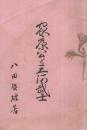 家康公と三河武士
八田
著